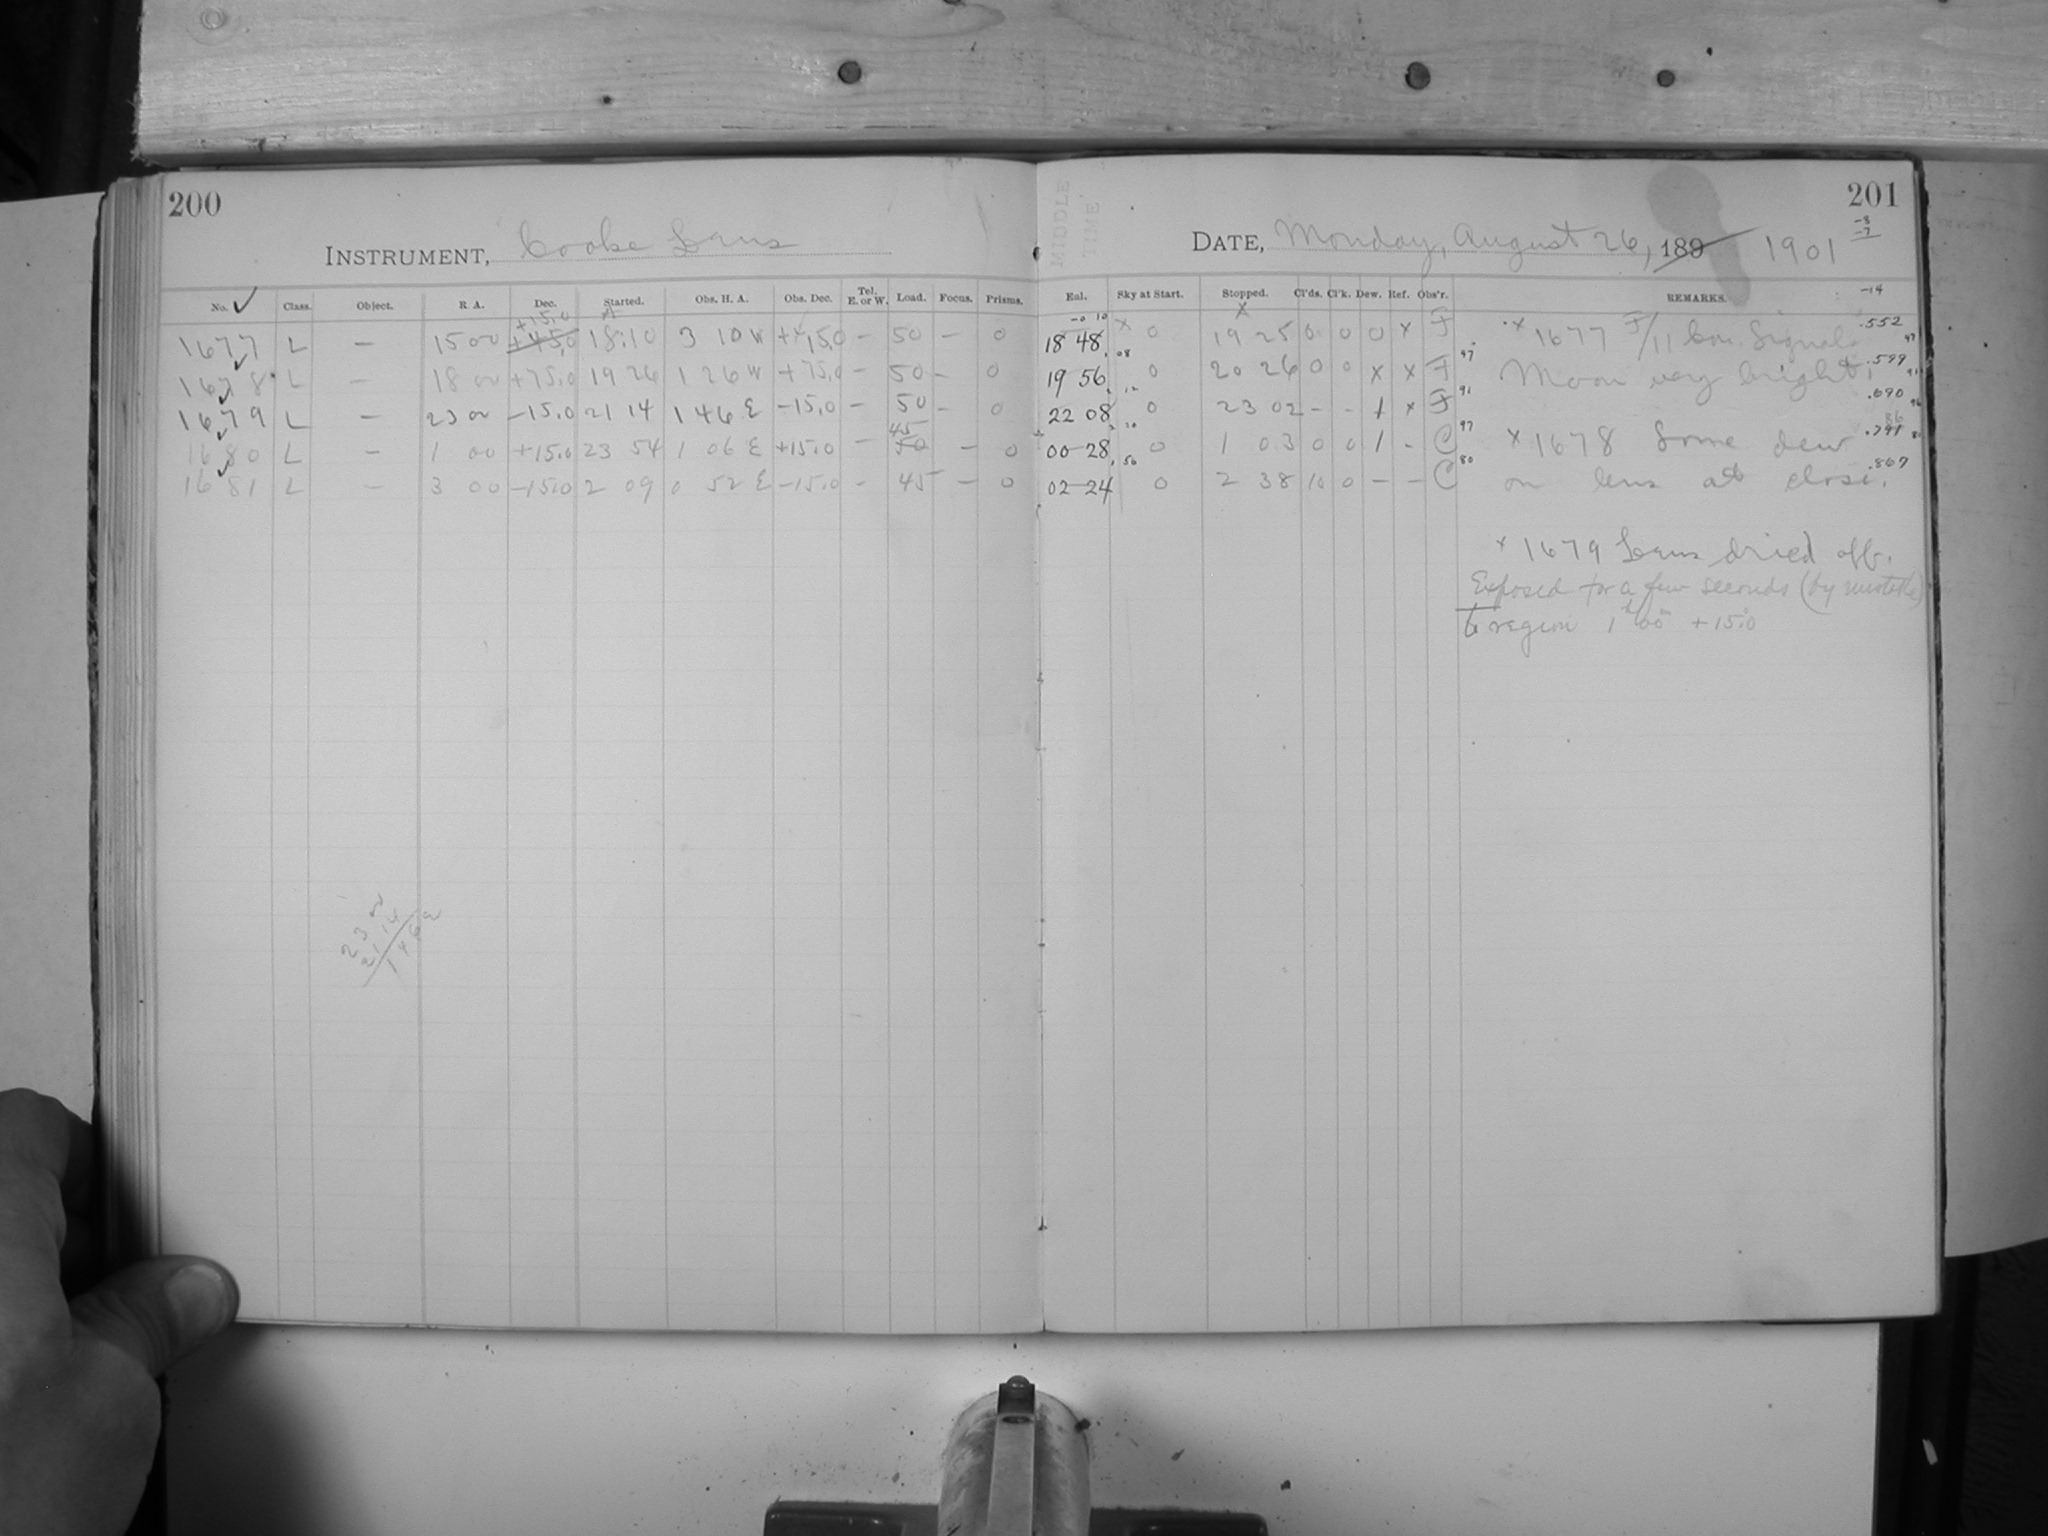 200
INSTRUMENT, Cooke Lens
No. Class. Object. R. A. Dec. Started. Obs. H. A. Obs. Dec. Tel. E. or W. Load. Focus. Prisms.
+15.0
1677 L – 15 00 +45.0 18:10 3 10 W +15.0 – 50 – 0
1678 L – 18 00 +75.0 19 26 1 26 W +75.0 – 50 – 0
1679 L – 23 00 –15.0 21 14 1 46 E –15.0 – 50 – 0
45
1680 L – 1 00 +15.0 23 54 1 06 E +15.0 – 50 – 0
1681 L – 3 00 –15.0 2 09 0 52 E –15.0 – 45 – 0
23 00
21 14
1 46
MIDDLE TIME
201
DATE, Monday, August 26, 189 1901
-8
-7
Eul. Sky at Start. Stopped. Cl'ds. Cl'k. Dew. Ref. Obs'r. REMARKS.
-14
18 48 0 19 25 0 0 0 x F x 1677 F/11 Signals .552
19 56 0 20 26 0 0 x x F Moon very bright. .599
22 08 0 23 02 – – 1 x F .690
00 28 0 1 03 0 0 1 – C x 1678 Some dew
02 24 0 2 38 10 0 – – C on lens at close. .867
x 1679 Lens dried off.
Exposed for a few seconds (by mistake)
to region 1h 00m +15.0